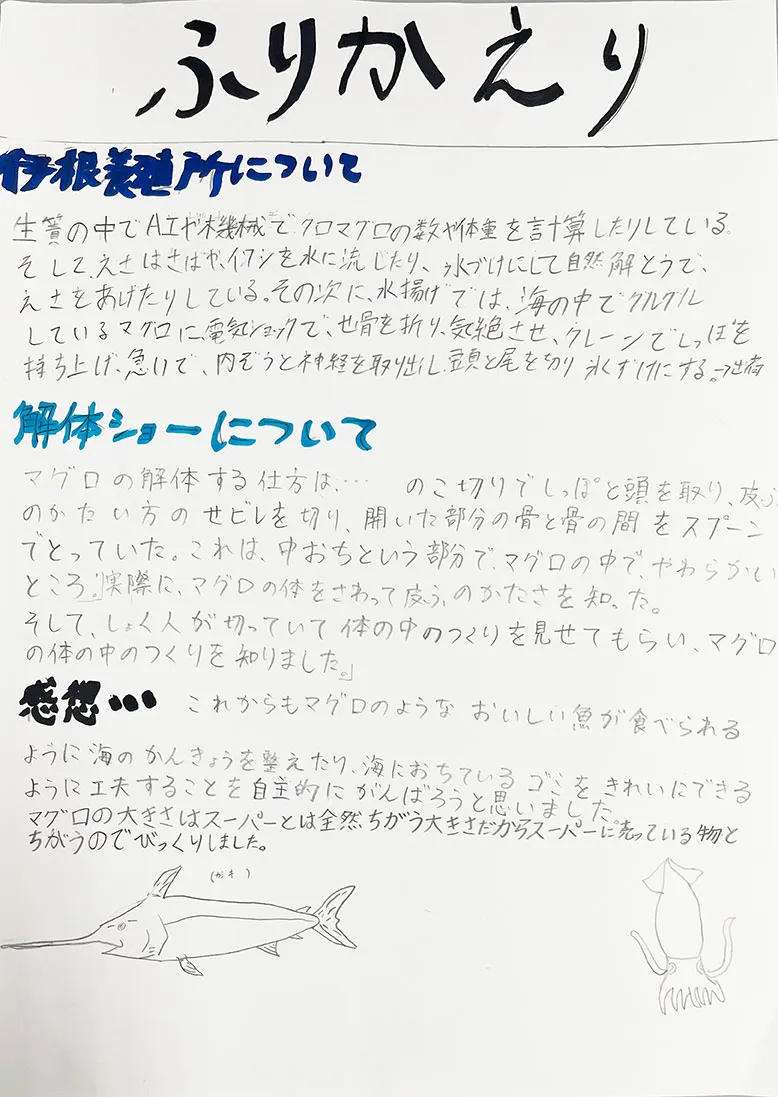 ふりかえり
伊根養殖所について
生簀の中でAIや機械でクロマグロの数や体重を計算したりしている。
そして、えさはさばや、イワシを水に流したり、氷づけにして自然解とうで、
えさをあげたりしている。その次に、水揚げでは、海の中でグルグル
しているマグロに、電気ショックで、骨を折り、気絶させ、クレーンでしっぽを
持ち上げ、急いで、内ぞうと神経を取り出し、頭と尾を切り 氷くずけにする。→出荷
解体ショーについて
マグロの解体する仕方は、… のこ切りでしっぽと頭を取り、皮ふ
のかたい方のせビレを切り、開いた部分の骨と骨の間をスプーン
でとっていた。これは、中おちという部分で、マグロの中で、やわらかい
ところ。「実際に、マグロの体をさわって皮ふのかたさを知った。
そして、しょく人が切っていて体の中のつくりを見せてもらい、マグロ
の体の中のつくりを知りました。」
感想… これからもマグロのようなおいしい魚が食べられる
ように海のかんきょうを整えたり、海におちているゴミをきれいにできる
ように工夫することを自主的にがんばろうと思いました。
マグロの大きさはスーパーとは全然ちがう大きさだからスーパーに売っている物と
ちがうのでびっくりしました。